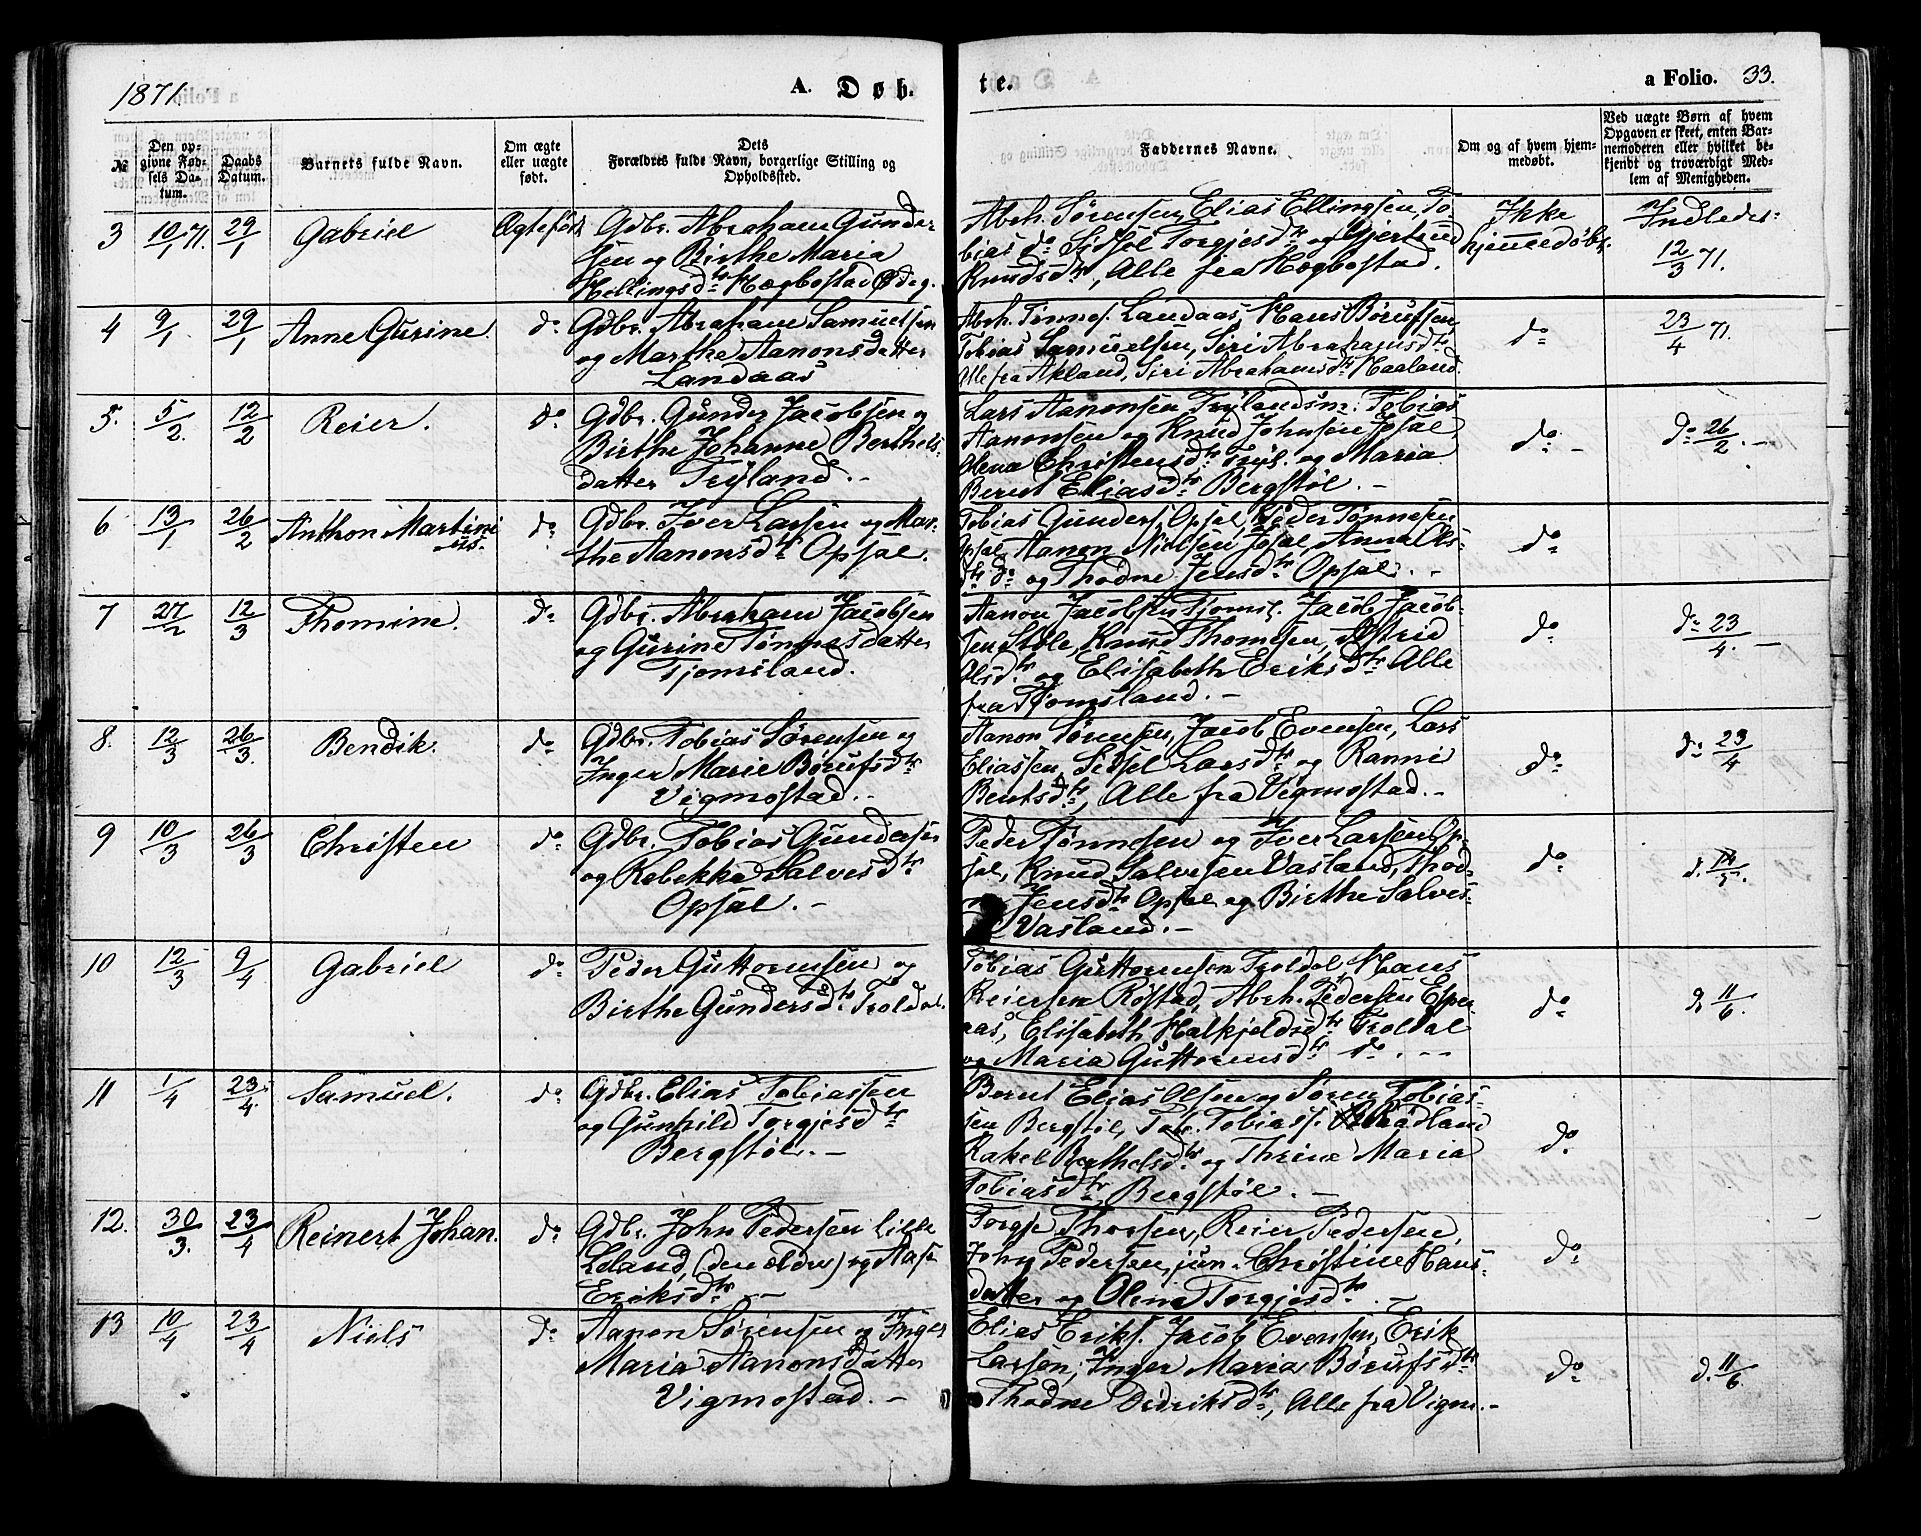 1871.
A. Døb.
te.
a Folio. 33.
№
Den opgivne Fødsels Datum.
Daabs Datum.
Barnets fulde Navn.
Om ægte eller uægte født.
Dets Forældres fulde Navn, borgerlige Stilling og Opholdssted.
Faddernes Navne.
Om og af hvem hjemmedøbt.
Ved uægte Børn af hvem Opgaven er skeet, enten Barnemoderen eller hvilket bekjendt og troværdigt Medlem af Menigheden.
3 10/1 71. 29/1 Gabriel Ægtefødt
Gdbr. Abraham Gunder
sen og Birthe Maria
Hellingsdtr Hægbostad Ødeg.
Abrh. Sørensen, Elias Ellingsen, To-
bias do Sidsel Torgjesdtr og Gjertrud
Knudsdtr, Alle fra Hægbostad.
Ikke
hjemmedøbt.
Indledet
12/3 71.
4 9/1 29/1 Anne Gurine. do
Gdbr. Abraham Samuelsen
og Marthe Aanonsdatter
Landaas
Abrh. Tønnes. Landaas, Hans Børufsen
Tobias Samuelsen, Siri Abrahamsdtr
Alle fra Akland, Siri Abrahamsdtr Haaland.
do
23/4 71.
5. 5/2. 12/2 Reier. do
Gdbr. Gunder Jacobsen og
Birthe Johanne Berthels-
datter Tryland. -
Lars Aanonsen Trylandsm. Tobias
Aanonsen og Knud Johnsen Josal,
Olena Christensdtr Tryl. og Maria
Bernt Eliasdtr Bergstøl. -
do -
do 26/2. -
6 13/1 26/2 Anthon Martini
us. do
Gdbr. Iver Larsen og Mar-
the Aanonsdtr Opsal.
Tobias Gunders. Opsal, Peder Tønnesen
Opsal, Aanon Nielsen Josal, Anna Ols-
dtr do og Thodne Jensdtr Opsal. -
do
7 27/2 12/3 Thomine. do
Gdbr. Abraham Jacobsen
og Gurine Tønnesdatter
Tjomsland.
Aanon Jacobsen Tjomsl. Jacob Jacob-
sen Støle, Knud Thomesen, Astrid
Olsdtr og Elisabeth Eriksdtr Alle
fra Tjomsland. -
do
do 23/4. -
8. 12/3 26/3. Bendik. do
Gdbr. Tobias Sørensen og
Inger Marie Børufsdtr
Vigmostad. -
Aanon Sørensen, Jacob Evensen, Lars
Eliassen, Sidsel Larsdtr og Ranni
Bentsdtr, Alle fra Vigmostad. -
do
do 23/4
9 10/3 26/3 Christen do
Gdbr. Tobias Gundersen
og Rebekka Salvesdtr
Opsal. -
Peder Tønnesen og Iver Larsen Op-
sal, Knud Salvesen Vasland, Thod-
Jensdtr Opsal og Birthe Salves-
Vasland. -
do
10 12/3 9/4 Gabriel do
Peder Guttormsen og
Birthe Gundersdtr Troldal.
Tobias Guttormsen Troldal, Hans
Reiersen Røstad, Abrh. Pedersen Espe-
aas, Elisabeth Halkjeldsdtr Troldal
og Maria Guttormsdtr do. --
do
do 11/6.
11 1/4 23/4. Samuel. do
Gdbr. Elias Tobiassen
og Gunhild Torgjesdtr
Bergstøl. -
Bernt Elias Olsen og Søren Tobias-
sen Bergstøl, Tobiass. Rødland
Rakel Berthelsdtr og Thrine Maria
Tobiasdtr Bergstøl. -
do
12. 30/3. 23/4 Reinert Johan. do
Gdbr. John Pedersen Lille
Leland, (den ældre) og Aase
Eriksdtr --
Torgje Thorsen, Reier Pedersen,
John Pedersen, jun. Christine Hans-
datter og Olene Torgjesdtr -
do
13 10/4 23/4 Niels do
Aanon Sørensen og Inger
Maria Aanonsdatter
Vigmostad. -
Elias Eriks. Jacob Evensen, Erik
Larsen, Inger Maria Børufsdtr
Thodne Dedriksdtr, Alle fra Vigm. -
do
d. 11/6.